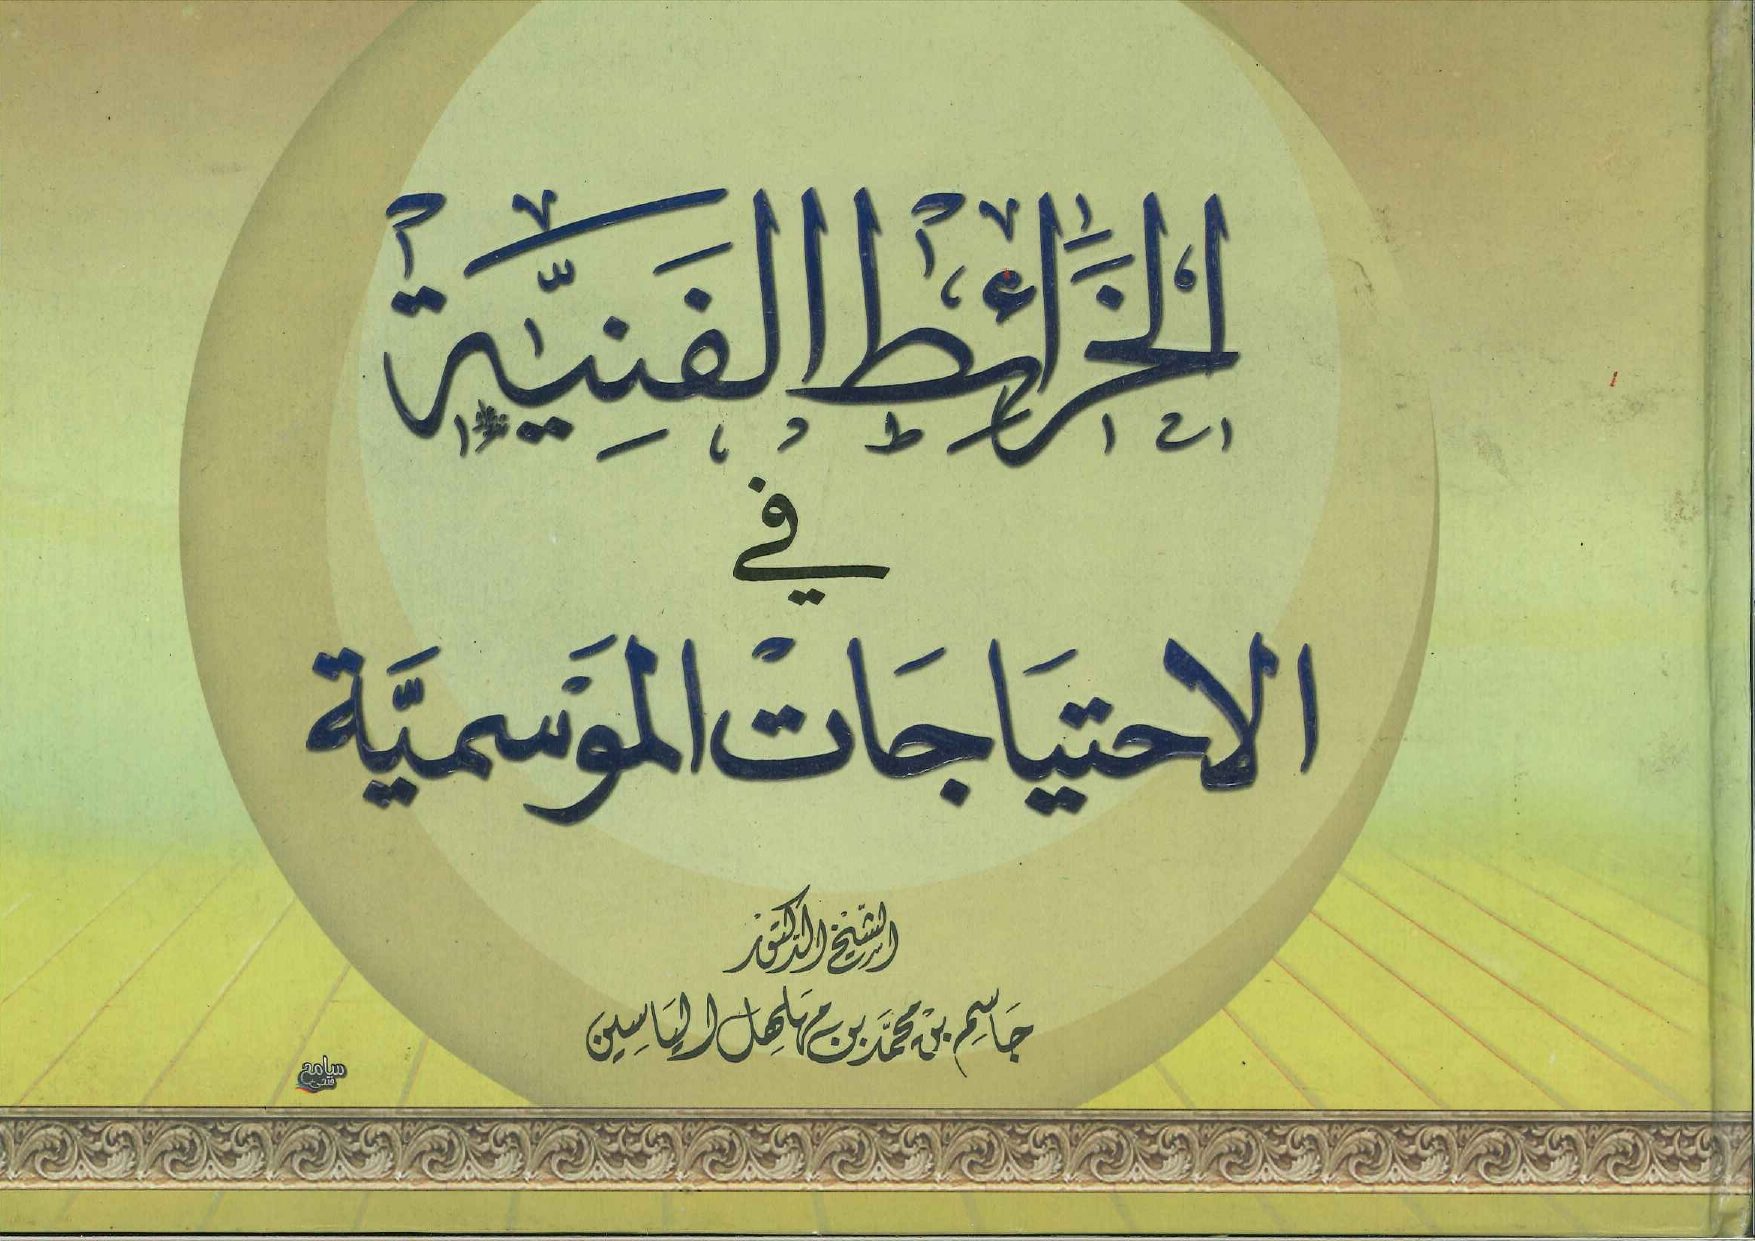 الخَرَائط الفَنِيَّة
في
الاحتيَاجَات الموَسميَّة
الشيخ الدكتور
جَاسِم بن محمَّد بن مهلهل اليَاسِين
سامح
فتحي